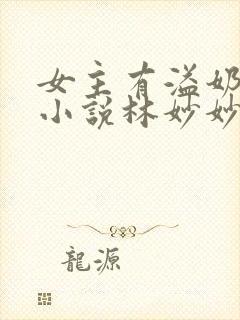 女主有溢奶
小說林妙妙
龍源